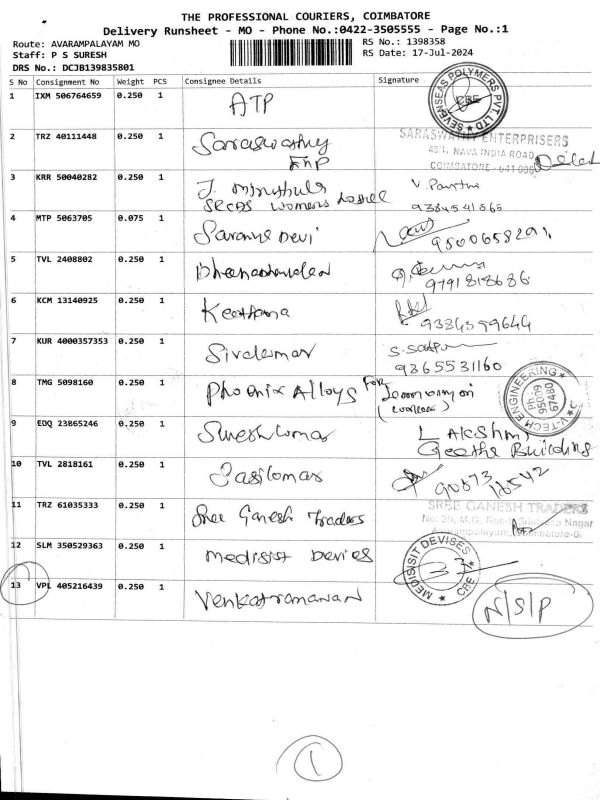 THE PROFESSIONAL COURIERS, COIMBATORE
Delivery Runsheet - MO - Phone No.:0422-3505555 - Page No.:1
Route: AVARAMPALAYAM MO RS No.: 1398358
Staff: P S SURESH RS Date: 17-Jul-2024
DRS No.: DCJB139835801
S No Consignment No Weight PCS Consignee Details Signature
1 IXM 506764659 0.250 1 ATP SEVENSEAS POLYMERS PVT. LTD CBE
2 TRZ 40111448 0.250 1 Saraswathy SARASWATHY ENTERPRISERS
NAVA INDIA ROAD
COIMBATORE
3 KRR 50040282 0.250 1 J.
SRCAS Womens hostel 9384541865
4 MTP 5063705 0.075 1 Saranya Devi 9500658291
5 TVL 2408802 0.250 1 9791818686
6 KCM 13140925 0.250 1 Keerthana 9384599644
7 KUR 4000357353 0.250 1 Sivakumar
9865531160
8 TMG 5098160 0.250 1 Phoenix Alloys FOR
V.TECH ENGINEERING Ph: 95009 67480
9 EDQ 23865246 0.250 1 Sureshkumar LAKSHMI
Geetha Building
10 TVL 2818161 0.250 1 Sasikumar 90873 18542
11 TRZ 61035333 0.250 1 Sree Ganesh Traders SREE GANESH TRADERS
No: 20, M.G. Nagar
12 SLM 350529363 0.250 1 Medisist Devies MEDISISIT DEVISES CBE
13 VPL 405216439 0.250 1 Venkatramanan N/S/P
1